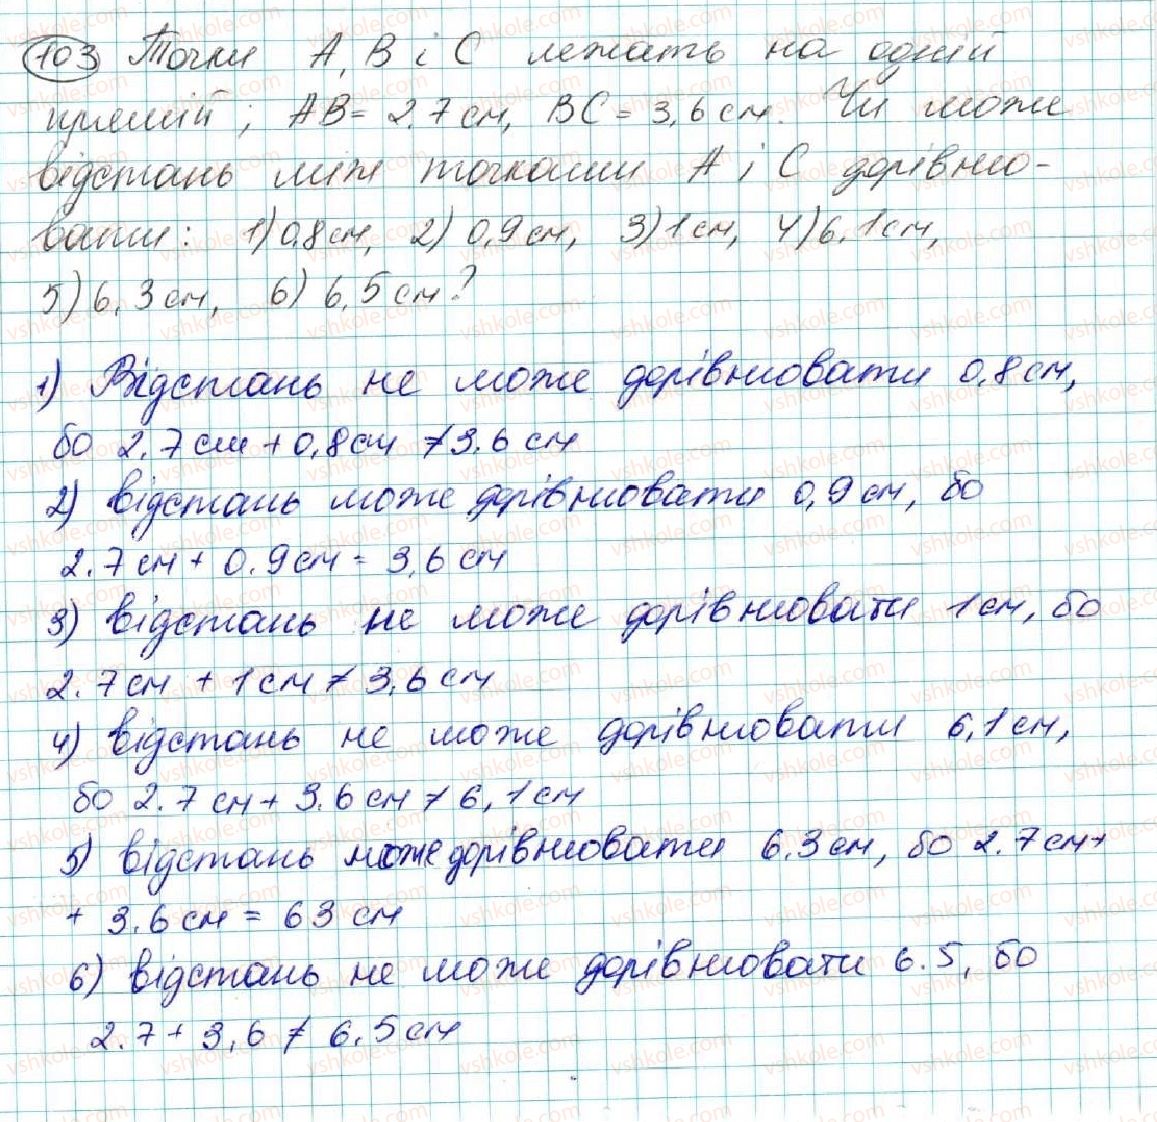 103 Точки A, B і C лежать на одній
прямій; AB = 2,7 см, BC = 3,6 см. Чи може
відстань між точками A і C дорівню-
вати: 1) 0,8 см, 2) 0,9 см, 3) 1 см, 4) 6,1 см,
5) 6,3 см, 6) 6,5 см?
1) Відстань не може дорівнювати 0,8 см,
бо 2,7 см + 0,8 см ≠ 3,6 см
2) відстань може дорівнювати 0,9 см, бо
2,7 см + 0,9 см = 3,6 см
3) відстань не може дорівнювати 1 см, бо
2,7 см + 1 см ≠ 3,6 см
4) відстань не може дорівнювати 6,1 см,
бо 2,7 см + 3,6 см ≠ 6,1 см
5) відстань може дорівнювати 6,3 см, бо 2,7 см +
+ 3,6 см = 63 см
6) відстань не може дорівнювати 6.5, бо
2.7 + 3,6 ≠ 6.5 см